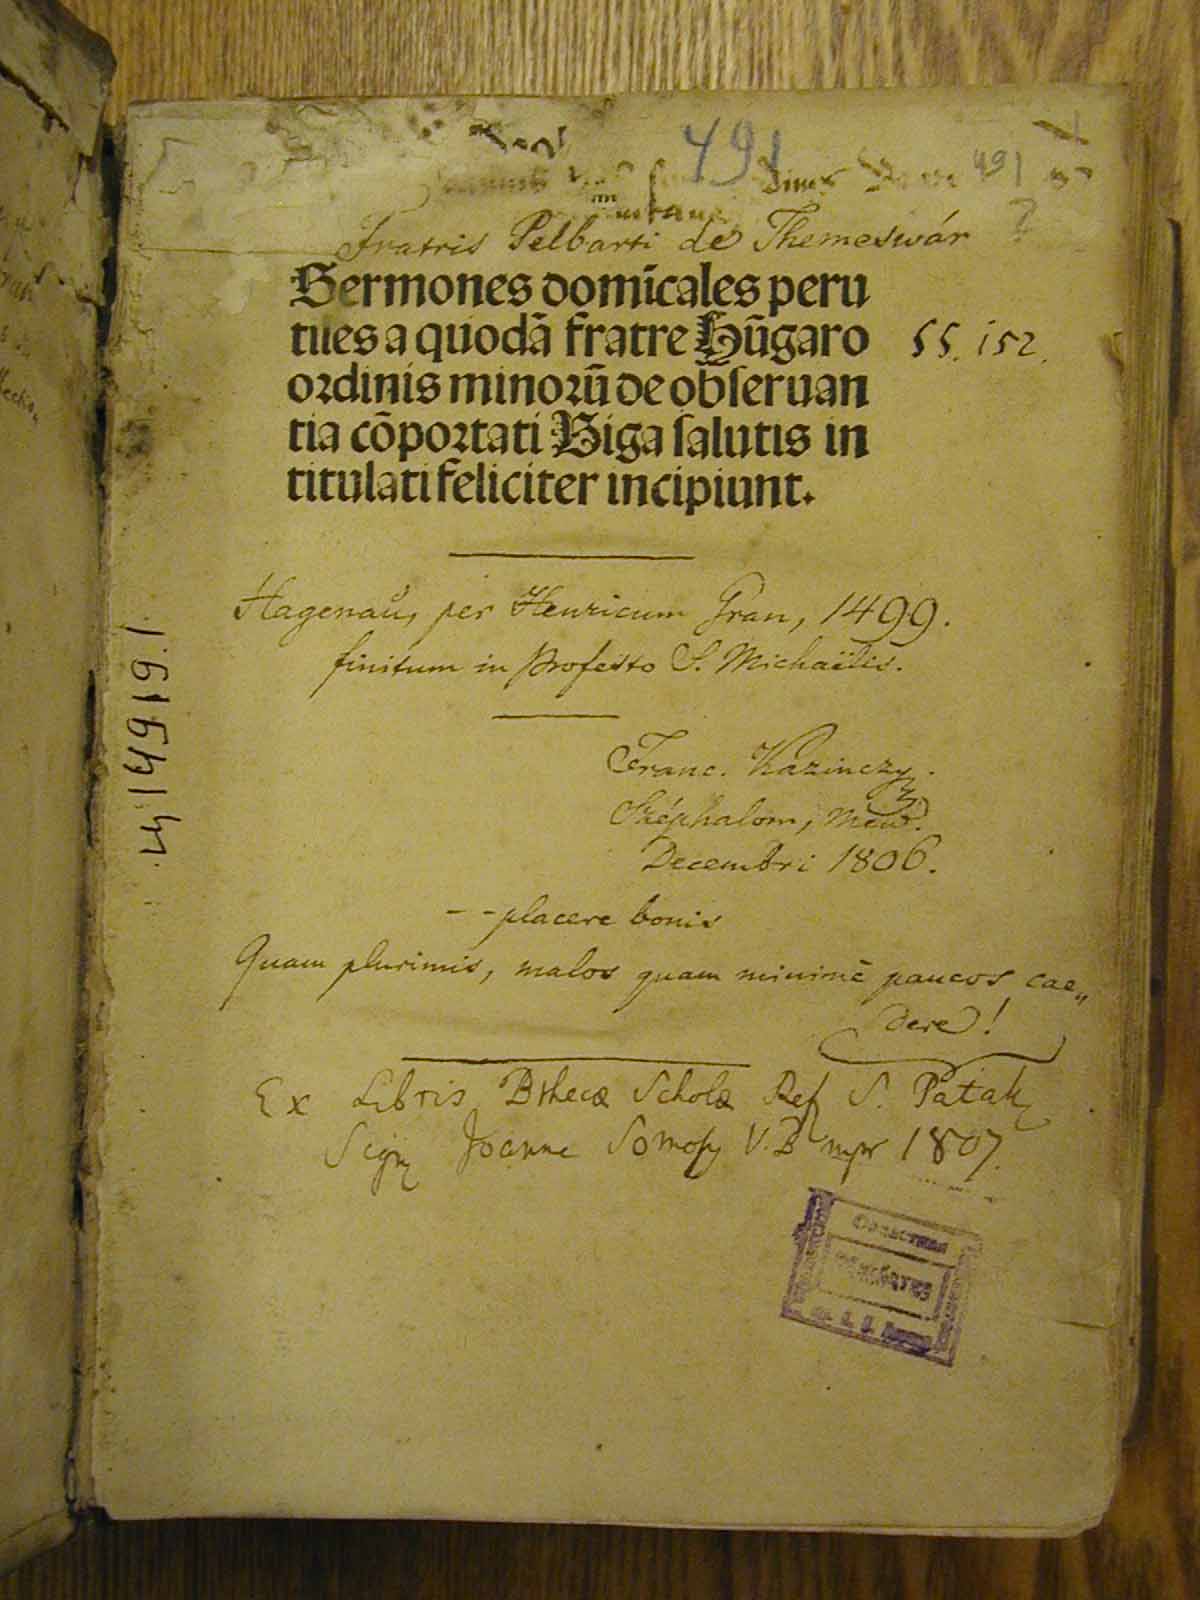 491
491
?
Fratris Pelbarti de Themeswár
Sermones domīcales peru
tiles a quodā fratre Hūgaro
55. 152.
ordinis minorū de obseruan
tia cōportati Biga salutis in
titulati feliciter incipiunt.
Hagenaŭ, per Henricum Gran, 1499.
finitum in profesto S. Michaëlis.
Franc. Kazinczy.
Széphalom, men.
Decembri 1806.
- - placere bonis
Quam plurimis, malos quam minimē paucos cae„
dere!
Ex Libris Bthecæ Scholæ Ref S. Patak
Joanne Somosy V.B mpr 1807.